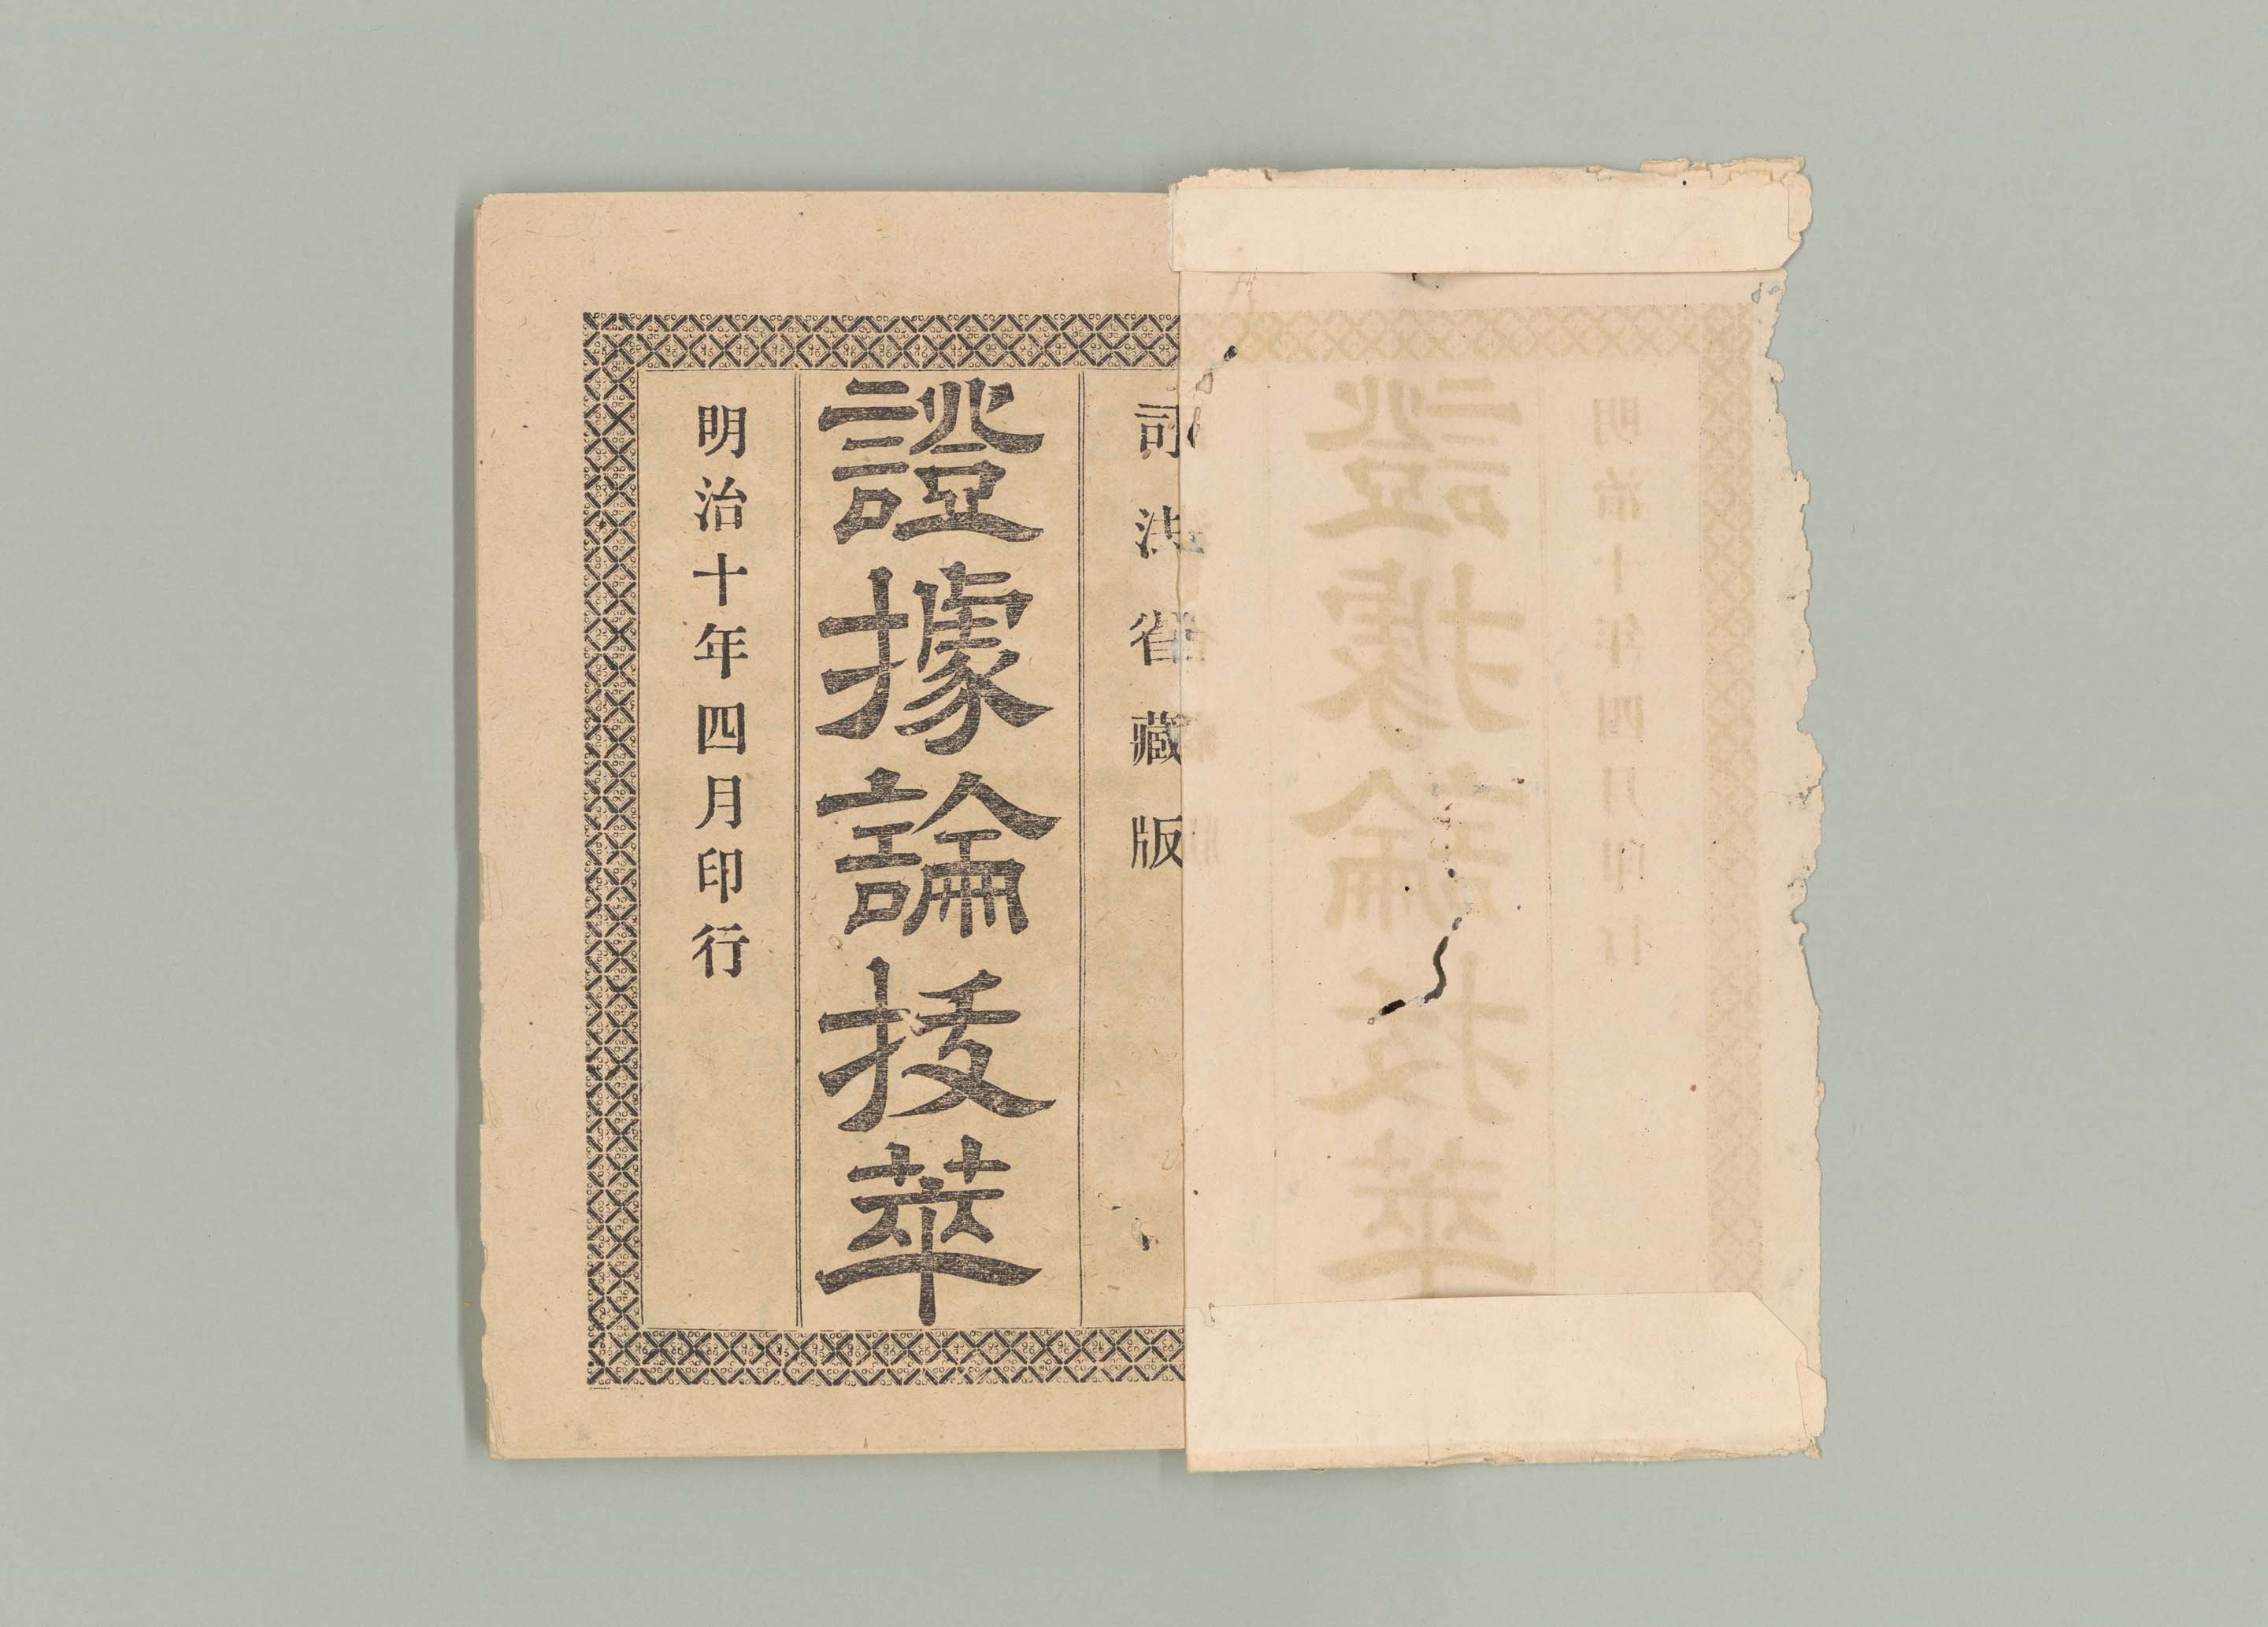 司法省藏版
證據論拔萃
明治十年四月印行